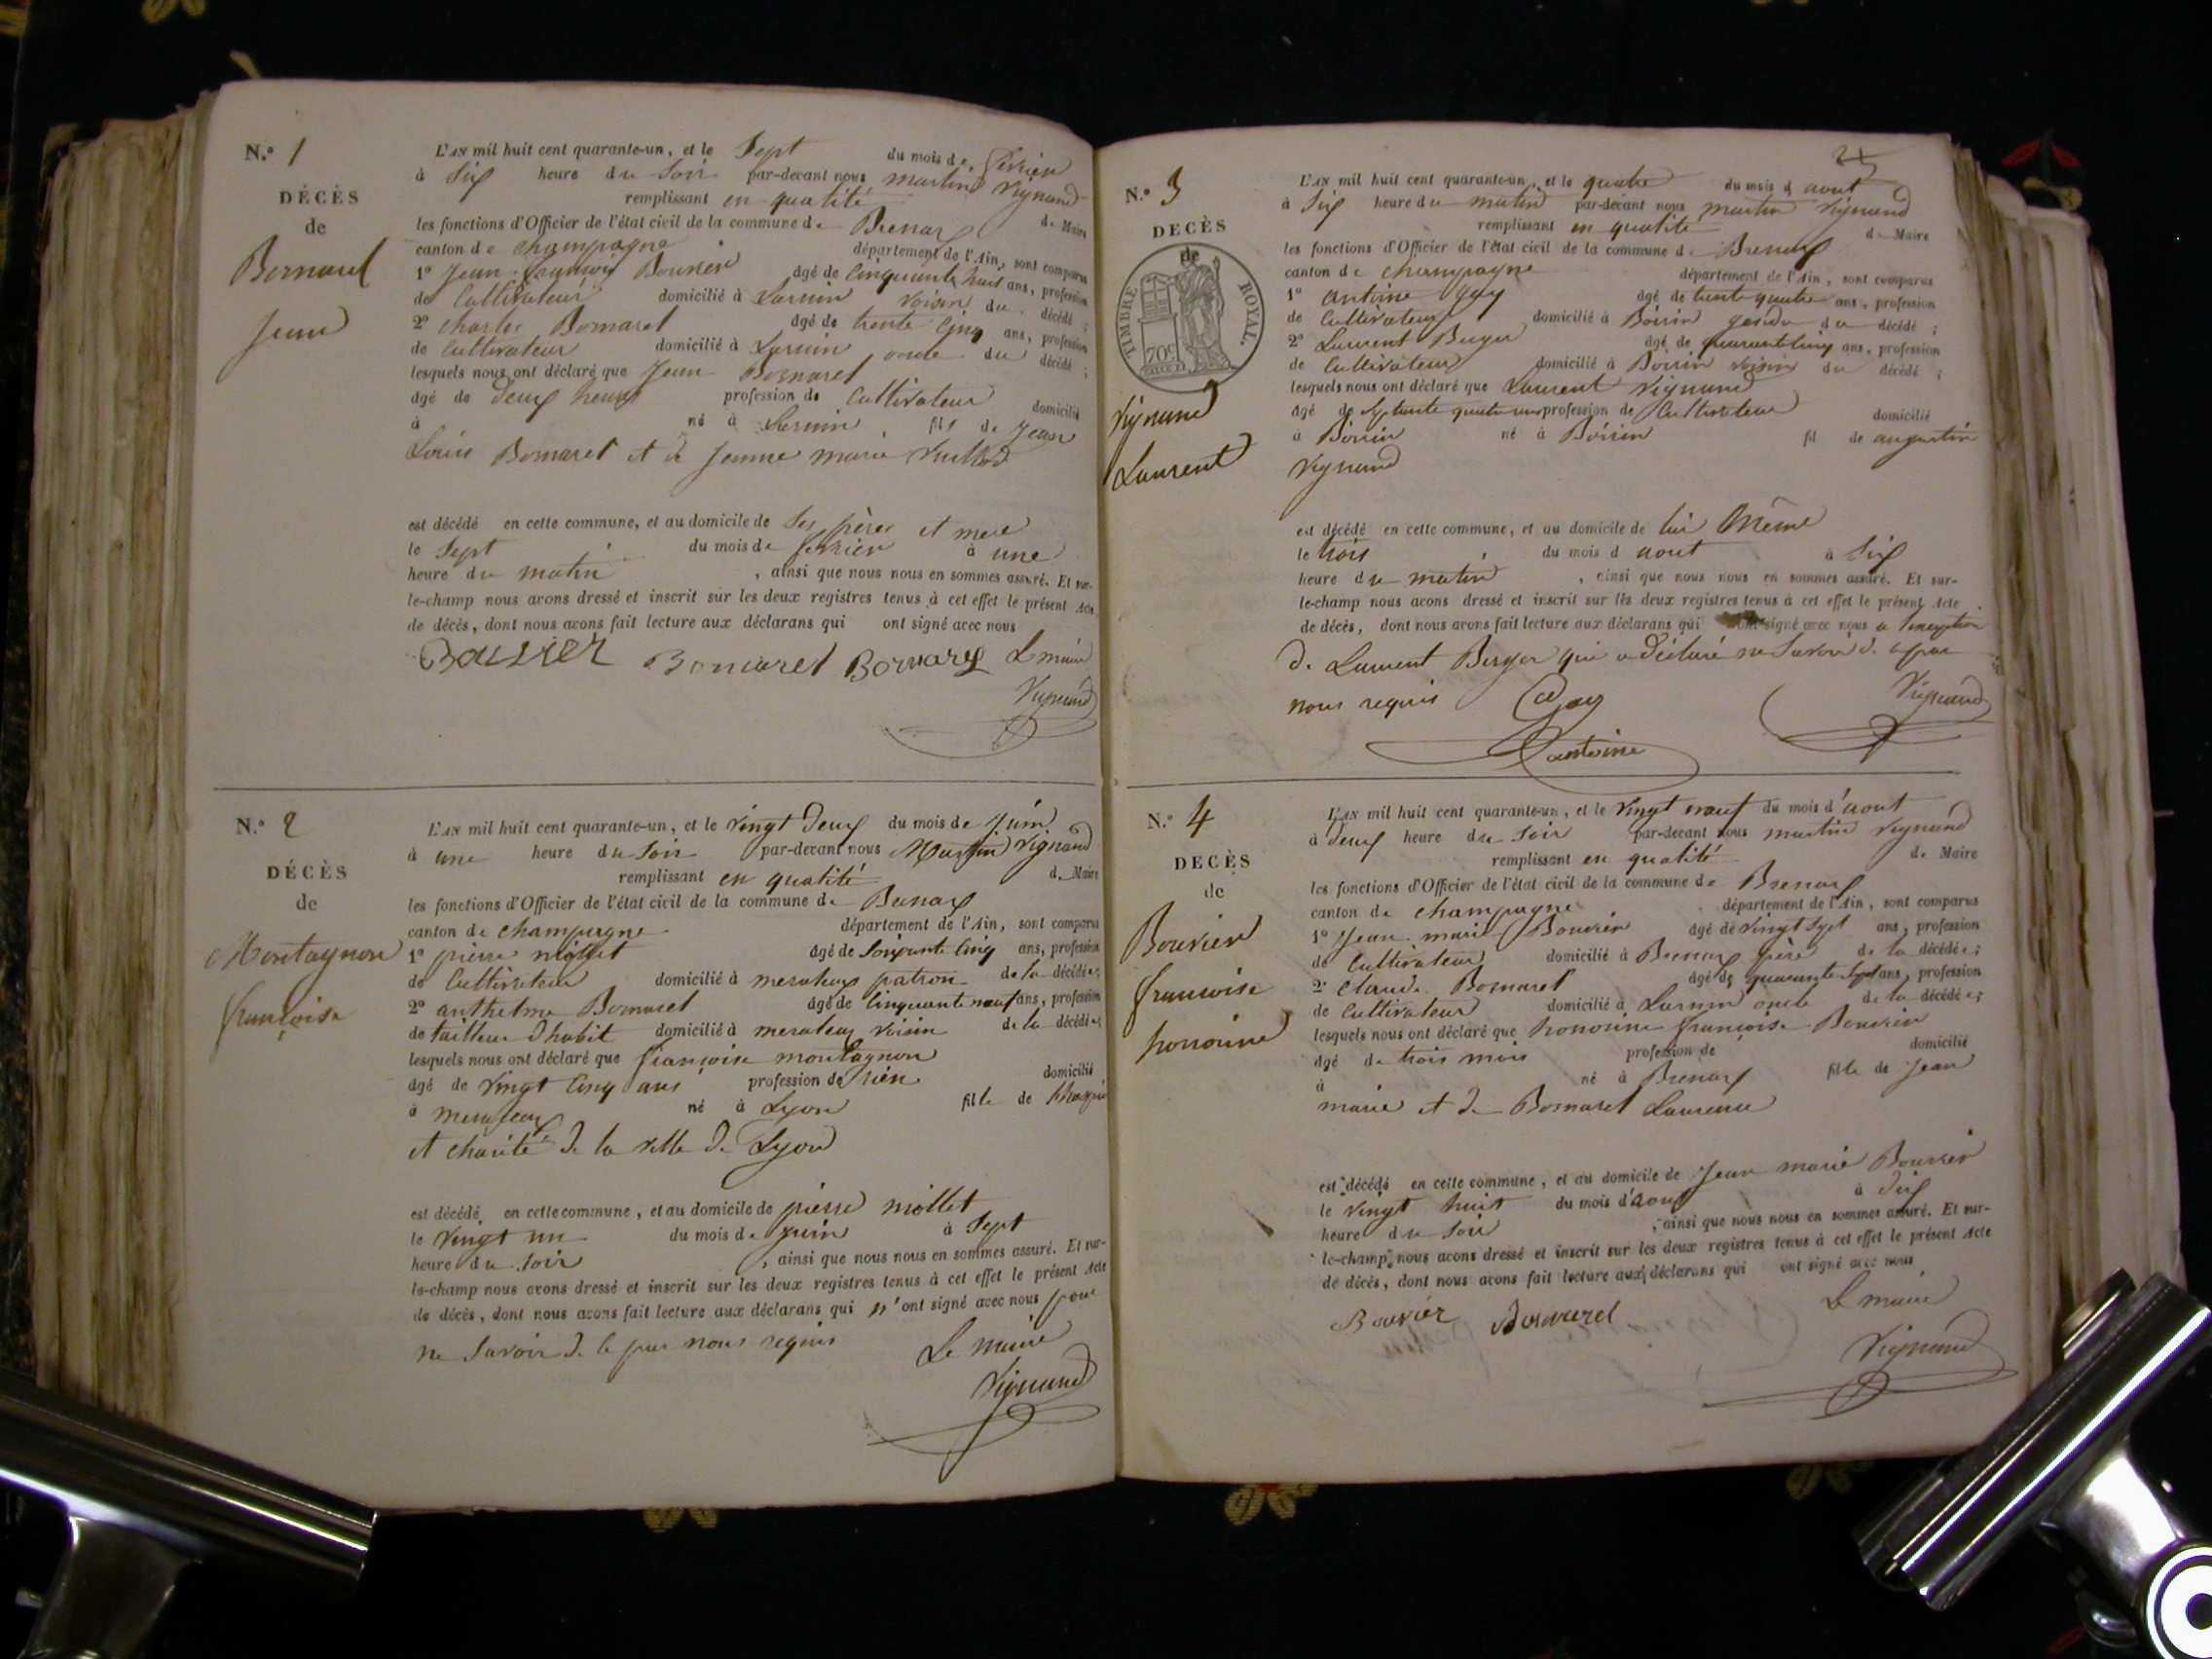 N.° 1
DÉCÈS
de
Bornarel
Jean
L'AN mil huit cent quarante-un, et le Sept du mois de fevrier
à Six heure du Soir par-devant nous martin Vignand
remplissant en qualité de Maire
les fonctions d'Officier de l'état civil de la commune de Brenaz
canton de Champagne département de l'Ain, sont comparus
1° Jean françois Bouvier âgé de Cinquante huit ans, profession
de Cultivateur domicilié à voisin du décédé ;
2° Charles Bornarel âgé de trente Cinq ans, profession
de Cultivateur domicilié à oncle du décédé ;
lesquels nous ont déclaré que Jean Bornarel
âgé de deux heures profession de Cultivateur domicilié
à né à fils de Jean
Louis Bornarel et de Jeanne marie
est décédé en cette commune, et au domicile de Ses père et mere
le Sept du mois de fevrier à une
heure du matin , ainsi que nous nous en sommes assuré. Et sur-
le-champ nous avons dressé et inscrit sur les deux registres tenus à cet effet le présent Acte
de décès, dont nous avons fait lecture aux déclarans qui ont signé avec nous
Bouvier Bornarel Le maire
Vignand
N.° 2
DÉCÈS
de
Montagnon
françoise
L'AN mil huit cent quarante-un, et le vingt deux du mois de Juin
à une heure du Soir par-devant nous Martin Vignand
remplissant en qualité de Maire
les fonctions d'Officier de l'état civil de la commune de Brenaz
canton de Champagne département de l'Ain, sont comparus
1° pierre miollet âgé de Soixante Cinq ans, profession
de Cultivateur domicilié à meraleaz patron de la décédée ;
2° anthelme Bornarel âgé de Cinquante neuf ans, profession
de tailleur d'habit domicilié à meraleaz voisin de la décédée ;
lesquels nous ont déclaré que françoise montagnon
âgé de vingt Cinq ans profession de rien domicilié
à meraleaz né à Lyon fille de
et charité de la ville de Lyon
est décédé en cette commune, et au domicile de pierre miollet
le vingt un du mois de Juin à Sept
heure du Soir , ainsi que nous nous en sommes assuré. Et sur-
le-champ nous avons dressé et inscrit sur les deux registres tenus à cet effet le présent Acte
de décès, dont nous avons fait lecture aux déclarans qui n'ont signé avec nous pour
ne Savoir de le par nous requis
Le maire
Vignand
N.° 3
DECÈS
de
TIMBRE ROYAL
70c
Vignand
Laurent
L'AN mil huit cent quarante-un, et le quatre du mois d aout
à Six heure du matin par-devant nous martin Vignand
remplissant en qualité de Maire
les fonctions d'Officier de l'état civil de la commune de Brenaz
canton de Champagne département de l'Ain, sont comparus
1° antoine Gay âgé de trente quatre ans, profession
de Cultivateur domicilié à Boirin gendre du décédé ;
2° Laurent Berger âgé de quarante Cinq ans, profession
de Cultivateur domicilié à Boirin voisin du décédé ;
lesquels nous ont déclaré que Laurent Vignand
âgé de Septante quatre ans profession de Cultivateur domicilié
à Boirin né à Boirin fil de augustin
Vignand
est décédé en cette commune, et au domicile de lui Même
le trois du mois d aout à Six
heure du matin , ainsi que nous nous en sommes assuré. Et sur-
le-champ nous avons dressé et inscrit sur les deux registres tenus à cet effet le présent Acte
de décès, dont nous avons fait lecture aux déclarans qui ont signé avec nous a l'exception
de Laurent Berger qui a déclaré ne Savoir de par
nous requis
Gay
antoine
Vignand
N.° 4
DECÈS
de
Bouvier
francoise
honorine
L'AN mil huit cent quarante-un, et le vingt neuf du mois d'aout
à deux heure du Soir par-devant nous martin Vignand
remplissant en qualité de Maire
les fonctions d'Officier de l'état civil de la commune de Brenaz
canton de Champagne département de l'Ain, sont comparus
1° Jean marie Bouvier âgé de vingt Sept ans, profession
de Cultivateur domicilié à Brenaz père de la décédée ;
2° Claude Bornarel âgé de quarante Sept ans, profession
de Cultivateur domicilié à oncle de la décédée ;
lesquels nous ont déclaré que honorine françoise Bouvier
âgé de trois mois profession de domicilié
à né à Brenaz fille de Jean
marie et de Bornarel Laurence
est décédé en cette commune, et au domicile de Jean marie Bouvier
le vingt huit du mois d'aout à dix
heure du Soir , ainsi que nous nous en sommes assuré. Et sur-
le-champ nous avons dressé et inscrit sur les deux registres tenus à cet effet le présent Acte
de décès, dont nous avons fait lecture aux déclarans qui ont signé avec nous
Bouvier Bornarel Le maire
Vignand